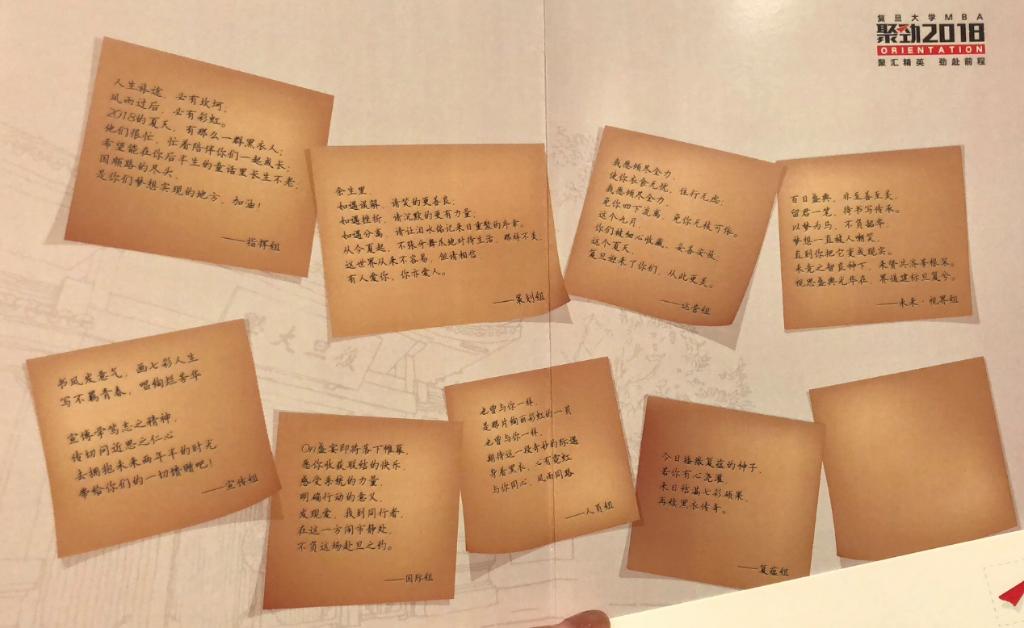 复旦大学MBA
聚劲2018
ORIENTATION
聚汇精英 劲赴前程
人生旅途，必有坎坷；
风雨过后，必有彩虹。
2018的夏天，有那么一群黑衣人；
他们很忙，忙着陪伴你们一起成长；
希望能在你后半生的童话里长生不老；
国顺路的尽头，
是你们梦想实现的地方，加油！
——指挥组
余生里
如遇误解，请笑的更善良；
如遇挫折，请沉默的更有力量，
如遇分离，请让泪水铭记来日重整的行拿。
从今夏起，不张牙舞爪地对待生活，那样不美，
这世界从来不容易，但请相信
有人爱你，你亦爱人。
——策划组
我愿倾尽全力，
使你衣食无忧，住行无虑；
我愿倾尽全力，
免你四下流离，免你无枝可依。
这个九月，
你们被细心收藏，妥善安放；
这个夏天，
复旦迎来了你们，从此更美。
——运营组
百日盛典，非至善至美，
留君一笔，待书写传承。
以梦为马，不负韶华，
梦想一直被人嘲笑，
直到你把它变成现实。
未竟之智良种下，来贤共济答根深。
视思盛典光尽在，界道建标旦复兮。
——未来·视界组
书风发意气，画七彩人生
写不羁青春，唱绚烂芳华
宣博学笃志之精神，
传切问近思之仁心
去拥抱未来两年半的时光
带给你们的一切馈赠吧！
——宣传组
Ori盛宴即将落下帷幕，
愿你收获联结的快乐，
感受系统的力量，
明确行动的意义，
发现爱，找到同行者，
在这一方闹市静处，
不负这场赴旦之约。
——国际组
也曾与你一样，
是那片绚丽彩虹的一员
也曾与你一样，
期待这一段奇妙的际遇
身着黑衣，心有霓虹
与你同心，风雨同路
——人员组
今日播撒复盐的种子，
若你有心浇灌
来日结蕴七彩硕果，
再续黑衣传奇。